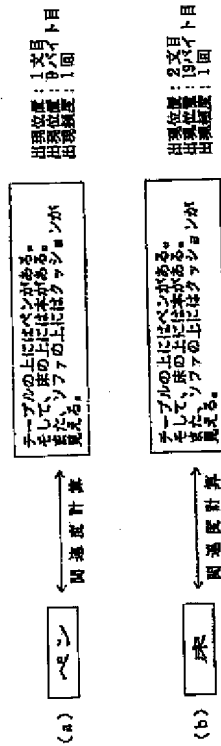 (a)
ペン
関連度計算
テーブルの上にはペンがある。
そして、床の上には本がある。
また、ソファの上にはクッションが
見える。
出現位置：1文目
出現位置：9バイト目
出現頻度：1回
(b)
床
関連度計算
テーブルの上にはペンがある。
そして、床の上には本がある。
また、ソファの上にはクッションが
見える。
出現位置：2文目
出現位置：19バイト目
出現頻度：1回